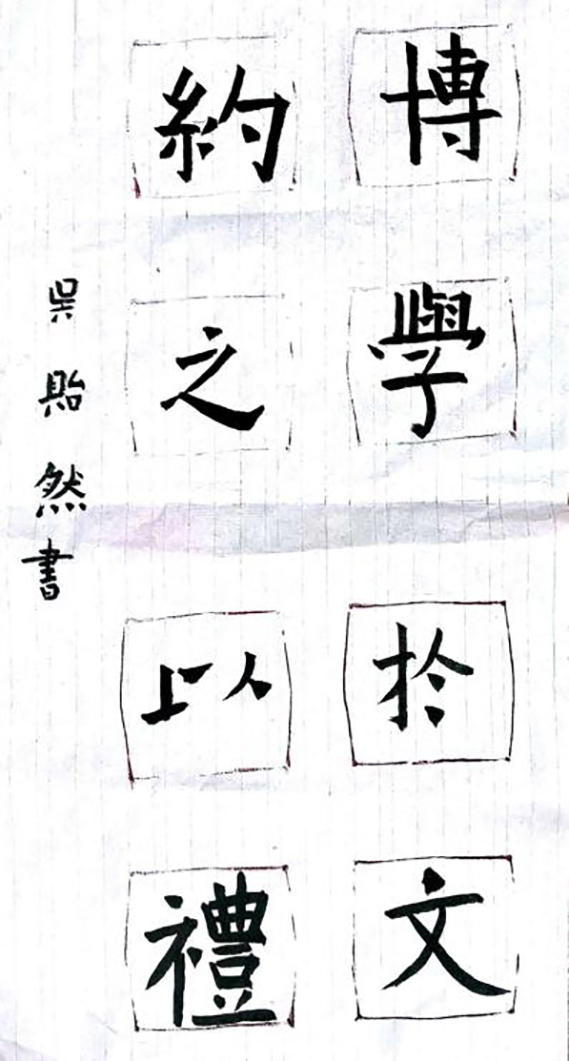 博學於文
約之以禮
吳貽然書